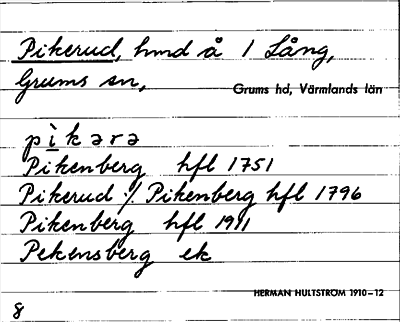 Pikerud, hmd å 1 Lång,
Grums sn,
Grums hd, Värmlands län
pìkərə
Pikenberg hfl 1751
Pikerud ·/. Pikenberg hfl 1796
Pikenberg hfl 1911
Pekensberg ek
HERMAN HULTSTRÖM 1910–12
8